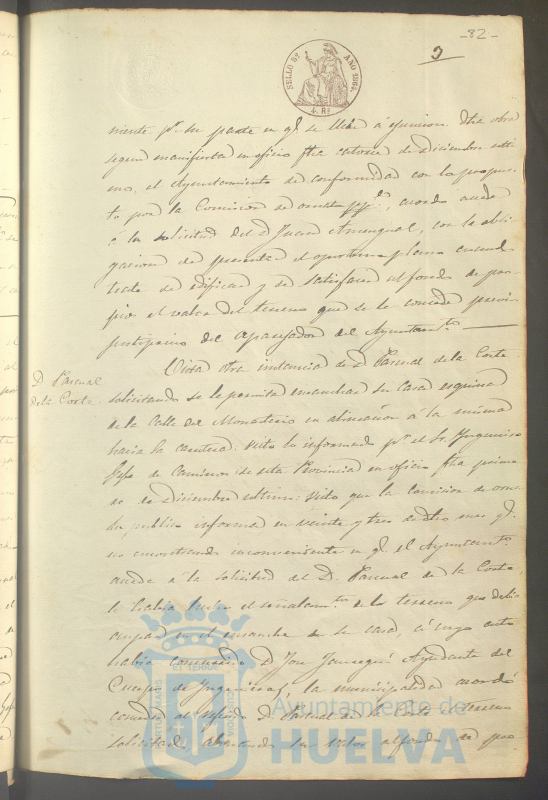 -82-
9
SELLO 9º AÑO 1864.
4. Rs
niente pr. su parte en ql. se lleve á ejecucion dha obra
segun manifiesta en oficio fha catorce de Diciembre ulti-
mo, el Ayuntamiento de conformidad con lo propues-
to por la Comision de ornato pp.co, acordó acceder
á la solicitud del D. Juan Amengual, con la obli-
gacion de presentar el oportuno plano cuando
trate de edificar y de satisfacer al fondo de pro-
pios el valor del terreno que se le concede previo
justiprecio del aparejador del Ayuntam.to
D. Pascual
de la Corte.
Vista otra instancia de D. Pascual de la Corte
solicitando se le permita ensanchar su Casa esquina
de la Calle del Monasterio en alineacion á la misma
hacia la carretera: visto lo informado pr. el Sr. Ingeniero
Jefe de Caminos de esta Provincia en oficio fha primero
de Diciembre ultimo: visto que la Comision de orna-
to publico informa en veinte y tres de dho mes ql.
no encontrando inconveniente en ql. el Ayuntam.to
acceda á la solicitud del D. Pascual de la Corte,
le habia hecho el señalam.to de los terrenos que debia
ocupar en el ensanche de su casa, á cuyo acto
habia concurrido D. Jose Jauregui Ayudante del
Cuerpo de Ingenieros, la municipalidad acordó
conceder al referido D. Pascual de la Corte el terreno
solicitado abonando su valor al fondo de pro-
PORTUS MARIS ET TERRAE CUSTODIA
Ayuntamiento de
HUELVA